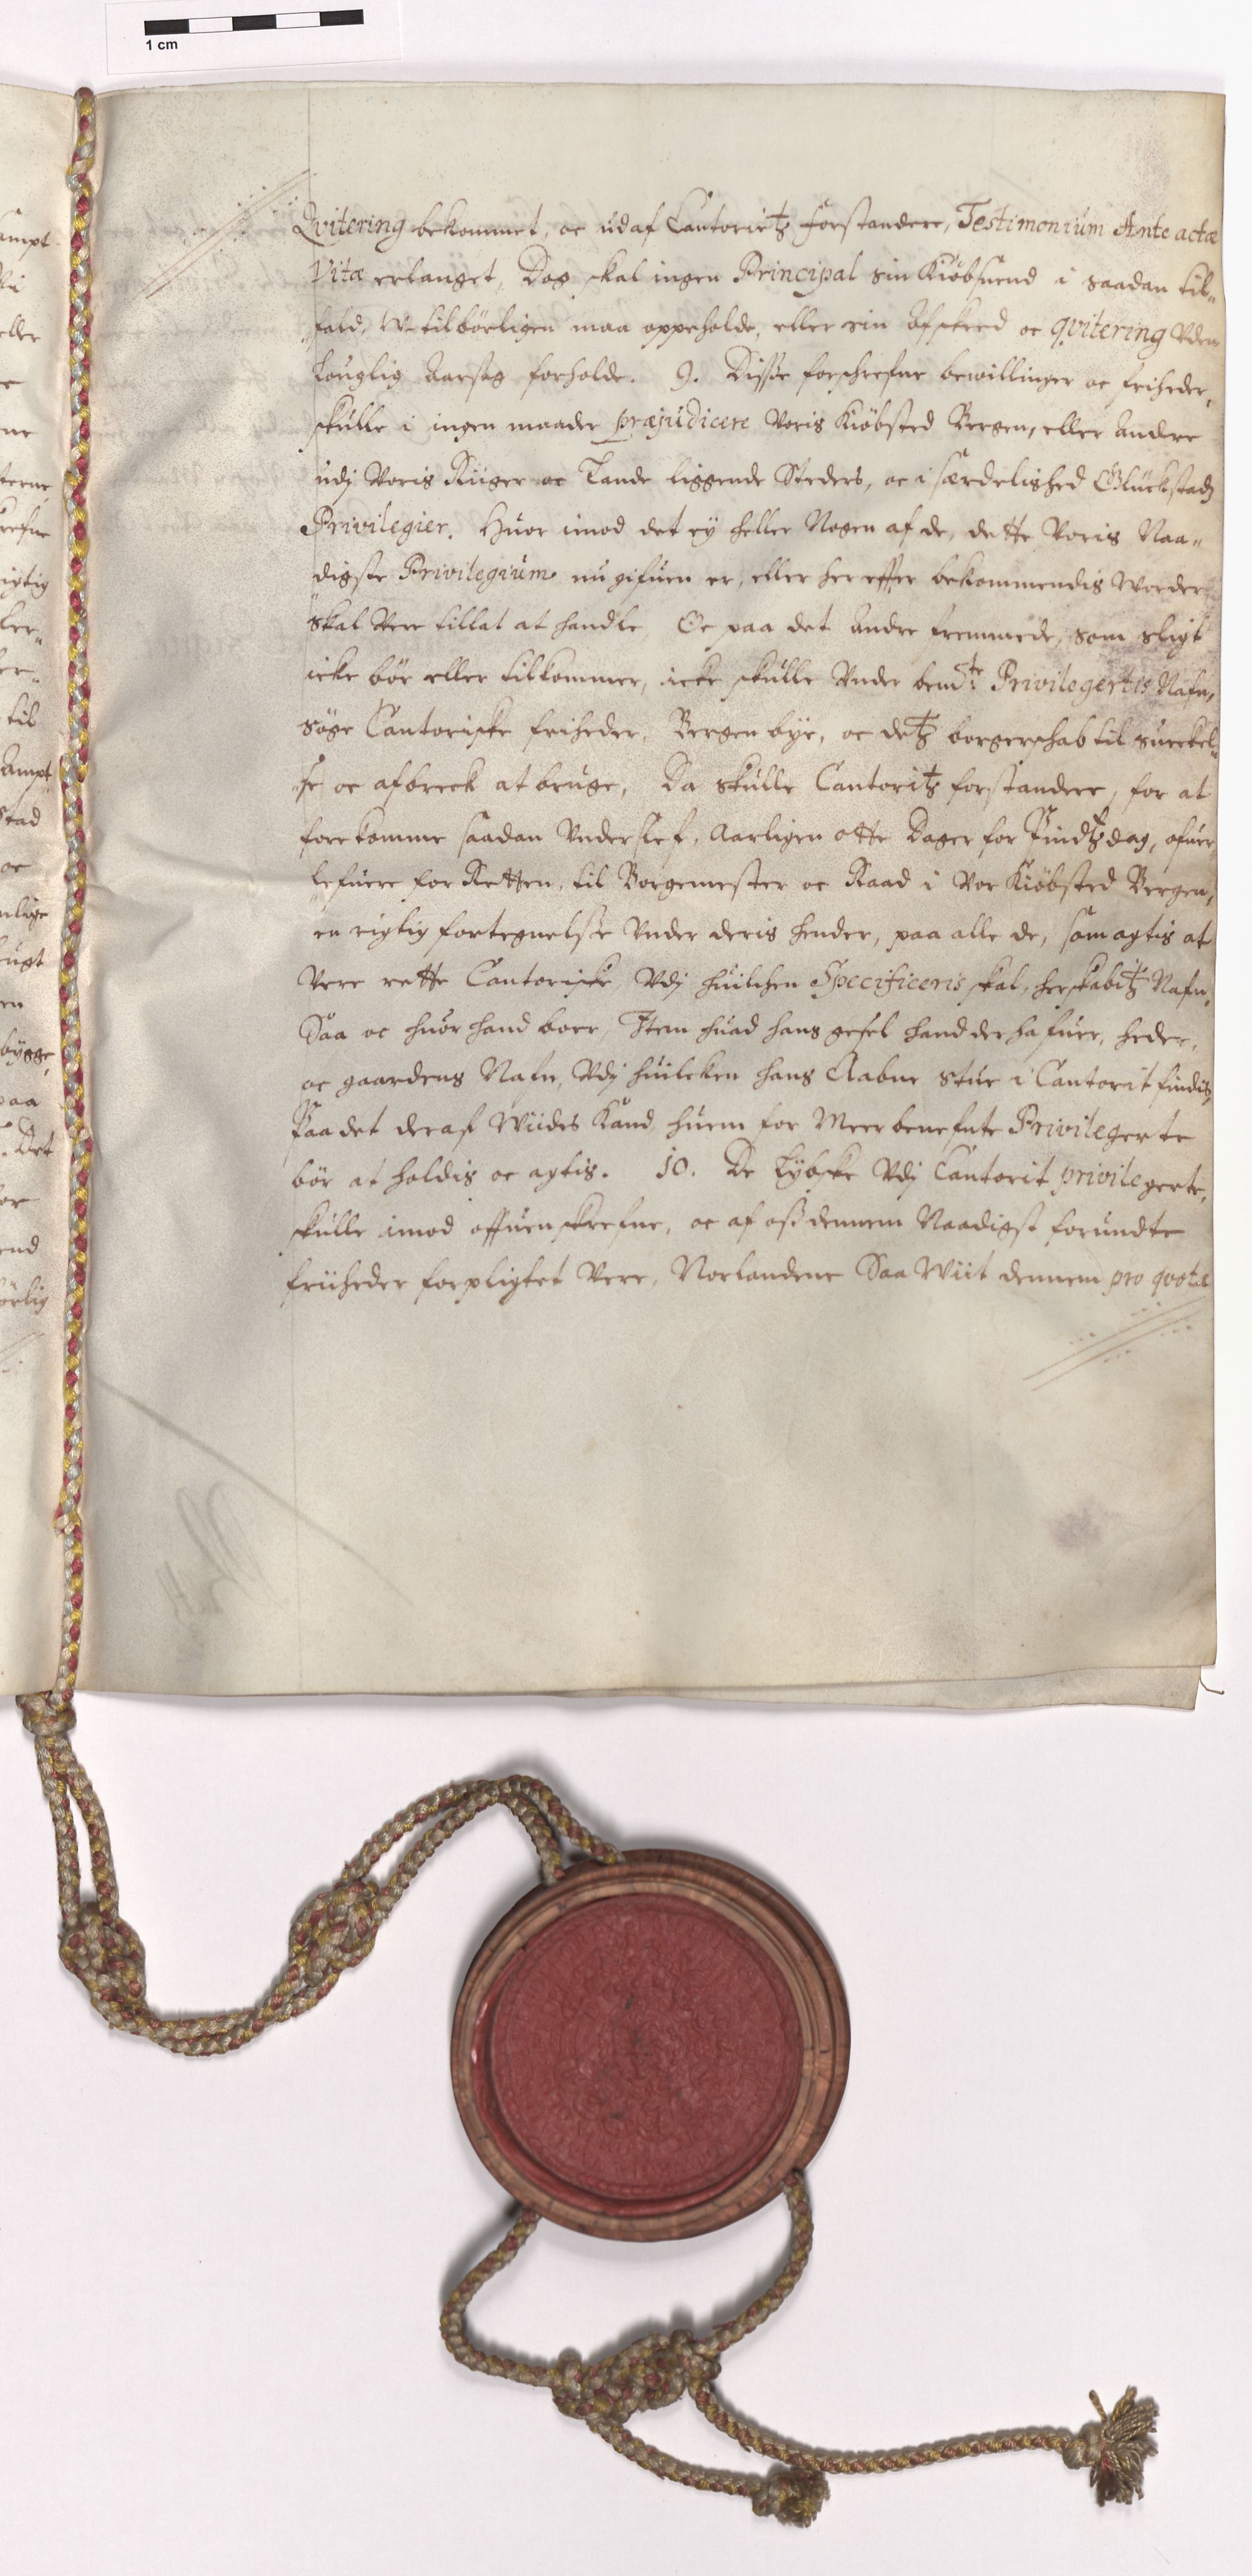 1 cm
Qvitering bekommet, oc udaf Cantorietz Forstandere, Testimonium Ante actæ
Vitæ erlanget, Dog skal ingen Principal sin Kiöbsuend i saadan til„
„fald, W-tilbörligen maa oppeholde, eller sin Afskeed oc qvitering Vden
Louglig Aarsag forholde. 9. Disse forschrefne bewillinger oc friheder,
skulle i ingen maader præjudicere Voris Kiöbsted Bergen, eller Andre
udj Voris Riiger oc Lande liggende Steders, oc i særdelished Glückstadz
Privilegier. Huor imod det ey heller Nogen af de, dette Voris Naa„
digste Privilegium nu gifuen er, eller her effter bekommendis Worder
skal Vere tillat at handle, Oc paa det Andre fremmede, som sligt
icke bör eller tilkommer, icke skulle Vnder bemte: Privilegertis Nafn,
söge Cantoriske friheder, Bergen bye, oc detz borgerschab til sueckel„
„se oc afbreck at bruge, Da skulle Cantoritz forstandere, for at
forekomme saadan Vnderslef, Aarligen otte Dager for Pindtzdag, ofuer
lefuere for Retten, til Borgemester oc Raad i Vor Kiöbsted Bergen,
en rigtig fortegnelsse Vnder deris hender, paa alle de, som agtis at
Vere rette Cantoriske, Vdj huilchen Specificeris skal, herskabitz Nafn,
Saa oc huor hand boer, Item huad hans gesel hand der hafuer, heder,
oc gaardens Nafn, Vdj huilcken hans Aabne stue i Cantorit findis,
Paa det deraf Wiides Kand huem for Meer benefnte Privilegerte
bör at holdis oc agtis. 10. De Lÿbske Vdj Cantorit privilegerte,
skulle imod offuenskrefne, oc af osz dennem Naadigst forundte
friiheder forpligtet Vere, Norlandene Saa Wiit dennem pro quota
ampt
eller
ne
terne
refne
igtig
ler„
er„
til
Ampt
stad
oc
nlige
sugt
en
bygge,
paa
. Det
or
end
örlig